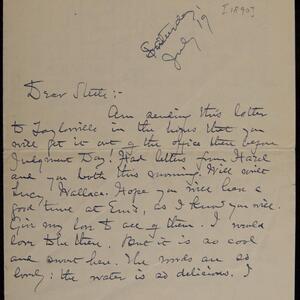 [1890]
Saturday,
July 19
Dear Stell:-
Am sending this letter
to Taylorville in the hopes that you
will get it out of the office there before
Judgment Day! Had letters from Hazel
and you both this morning. Will write
Lucy Wallace. Hope you will have a
good time at Enid, as I know you will.
Give my love to all of them. I would
love to be there. But it is so cool
and sweet here. The woods are so
lovely: the water is so delicious. I